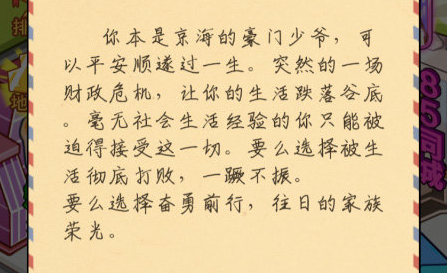 你本是京海的豪门少爷，可
以平安顺遂过一生。突然的一场
财政危机，让你的生活跌落谷底
。毫无社会生活经验的你只能被
迫得接受这一切。要么选择被生
活彻底打败，一蹶不振。
要么选择奋勇前行，往日的家族
荣光。